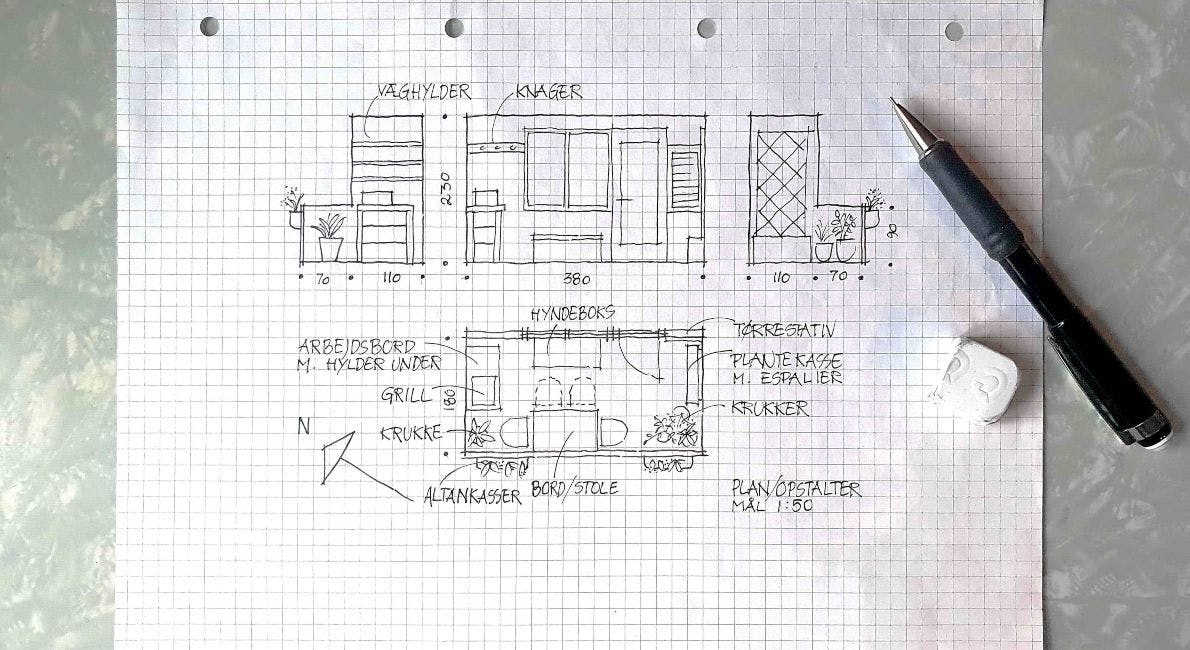 VÆGHYLDER
KNAGER
230
90
70
110
380
110
70
HYNDEBOKS
TØRRESTATIV
ARBEJDSBORD
M. HYLDER UNDER
PLANTEKASSE
M. ESPALIER
GRILL
180
KRUKKER
N
KRUKKE
ALTANKASSER
BORD/STOLE
PLAN/OPSTALTER
MÅL 1:50